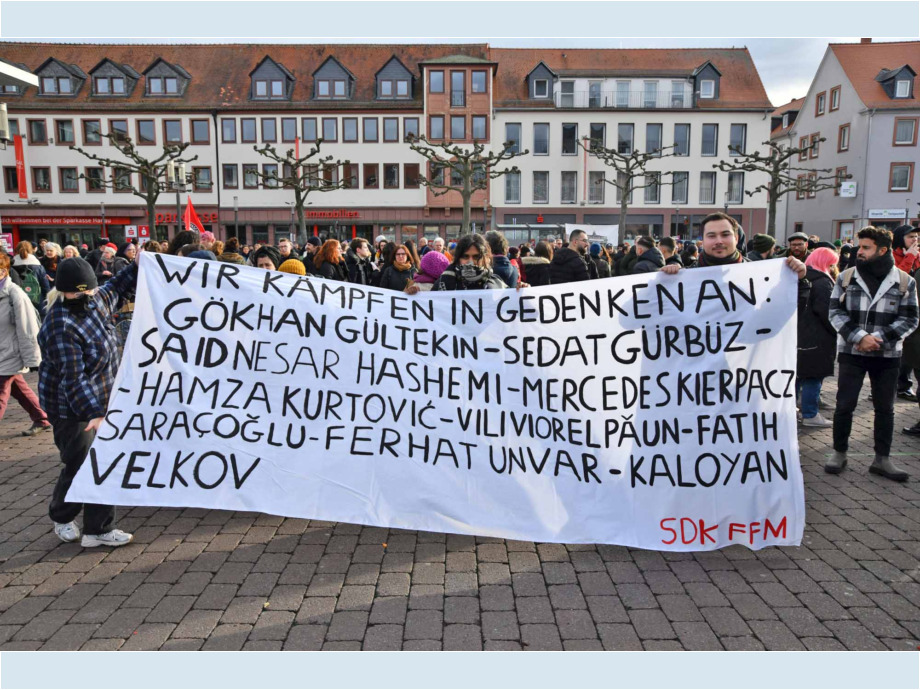 WIR KÄMPFEN IN GEDENKEN AN:
GÖKHAN GÜLTEKIN-SEDAT GÜRBÜZ-
SAID NESAR HASHEMI-MERCEDES KIERPACZ
-HAMZA KURTOVIĆ-VILI VIOREL PĂUN-FATIH
SARAÇOĞLU-FERHAT UNVAR-KALOYAN
VELKOV
SDK FFM
willkommen bei der Sparkasse Hanau
Sparkasse
Immobilien